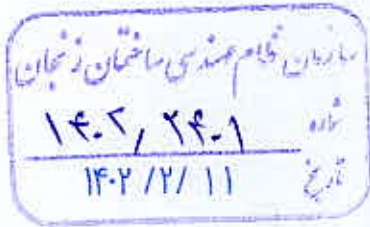 سازمان نظام مهندسی ساختمان زنجان
شماره ۱۴۰۲, ۲۴۰۱
تاریخ ۱۴۰۲/۲/۱۱